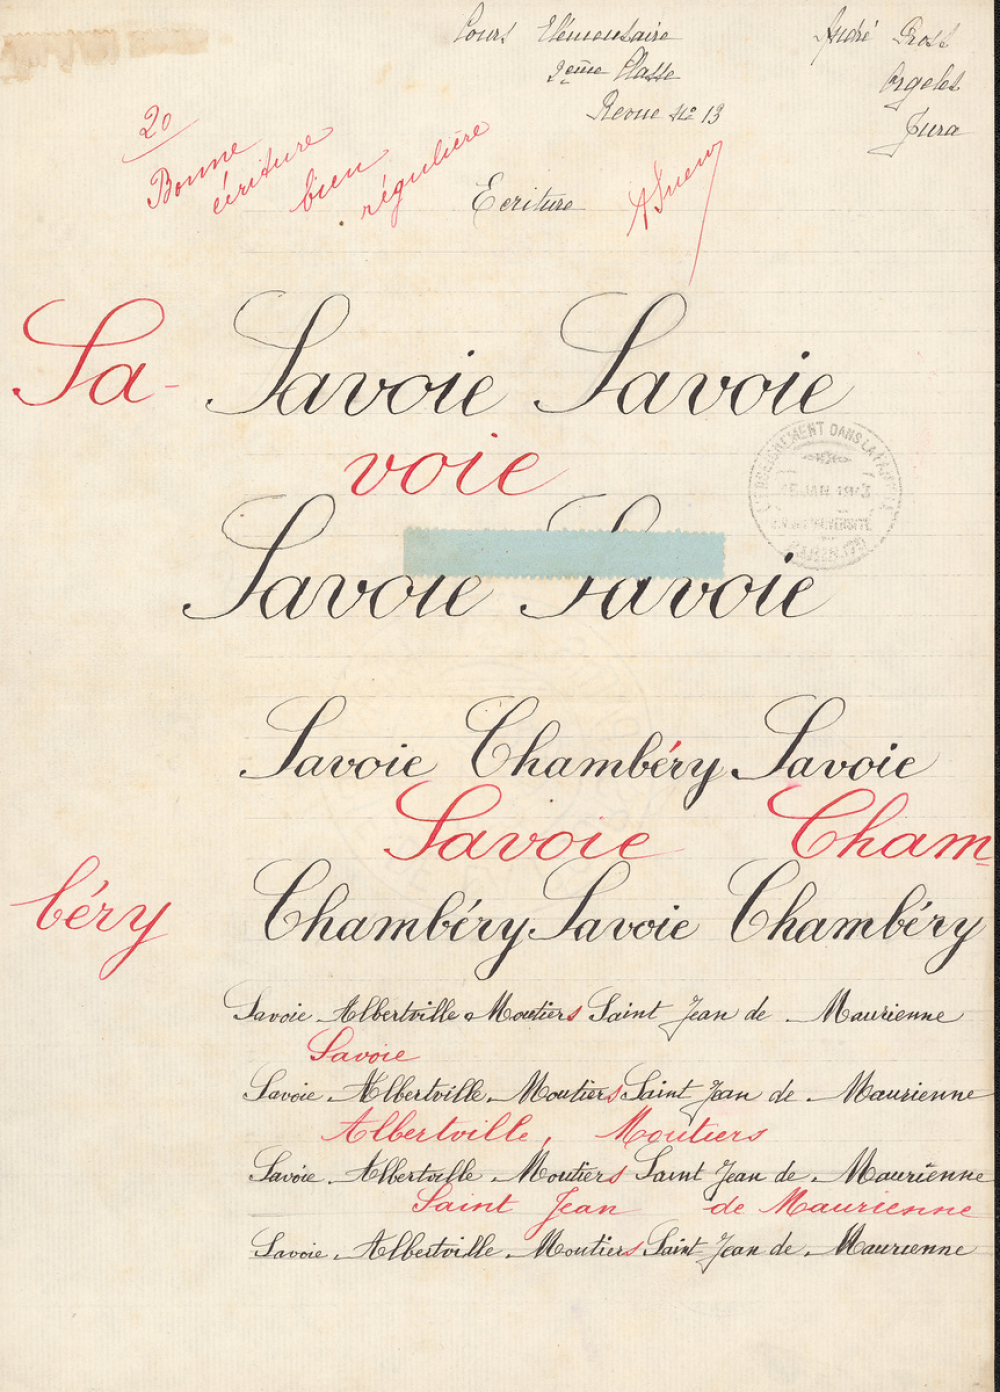 Cours Elémentaire
2eme Classe
Revue No 13
André Prost
Orgelet
Jura
20
Bonne écriture bien régulière
Ecriture
Sa- Savoie Savoie
voie
Savoie Savoie
Savoie Chambéry Savoie
Savoie Cham-
béry Chambéry Savoie Chambéry
Savoie Albertville Moutiers Saint Jean de Maurienne
Savoie
Savoie Albertville Moutiers Saint Jean de Maurienne
Albertville, Moutiers
Savoie Albertville Moutiers Saint Jean de Maurienne
Saint Jean de Maurienne
Savoie Albertville Moutiers Saint Jean de Maurienne
ENSEIGNEMENT DANS LA FAMILLE
JAN
UNIVERSITÉ
PARIS